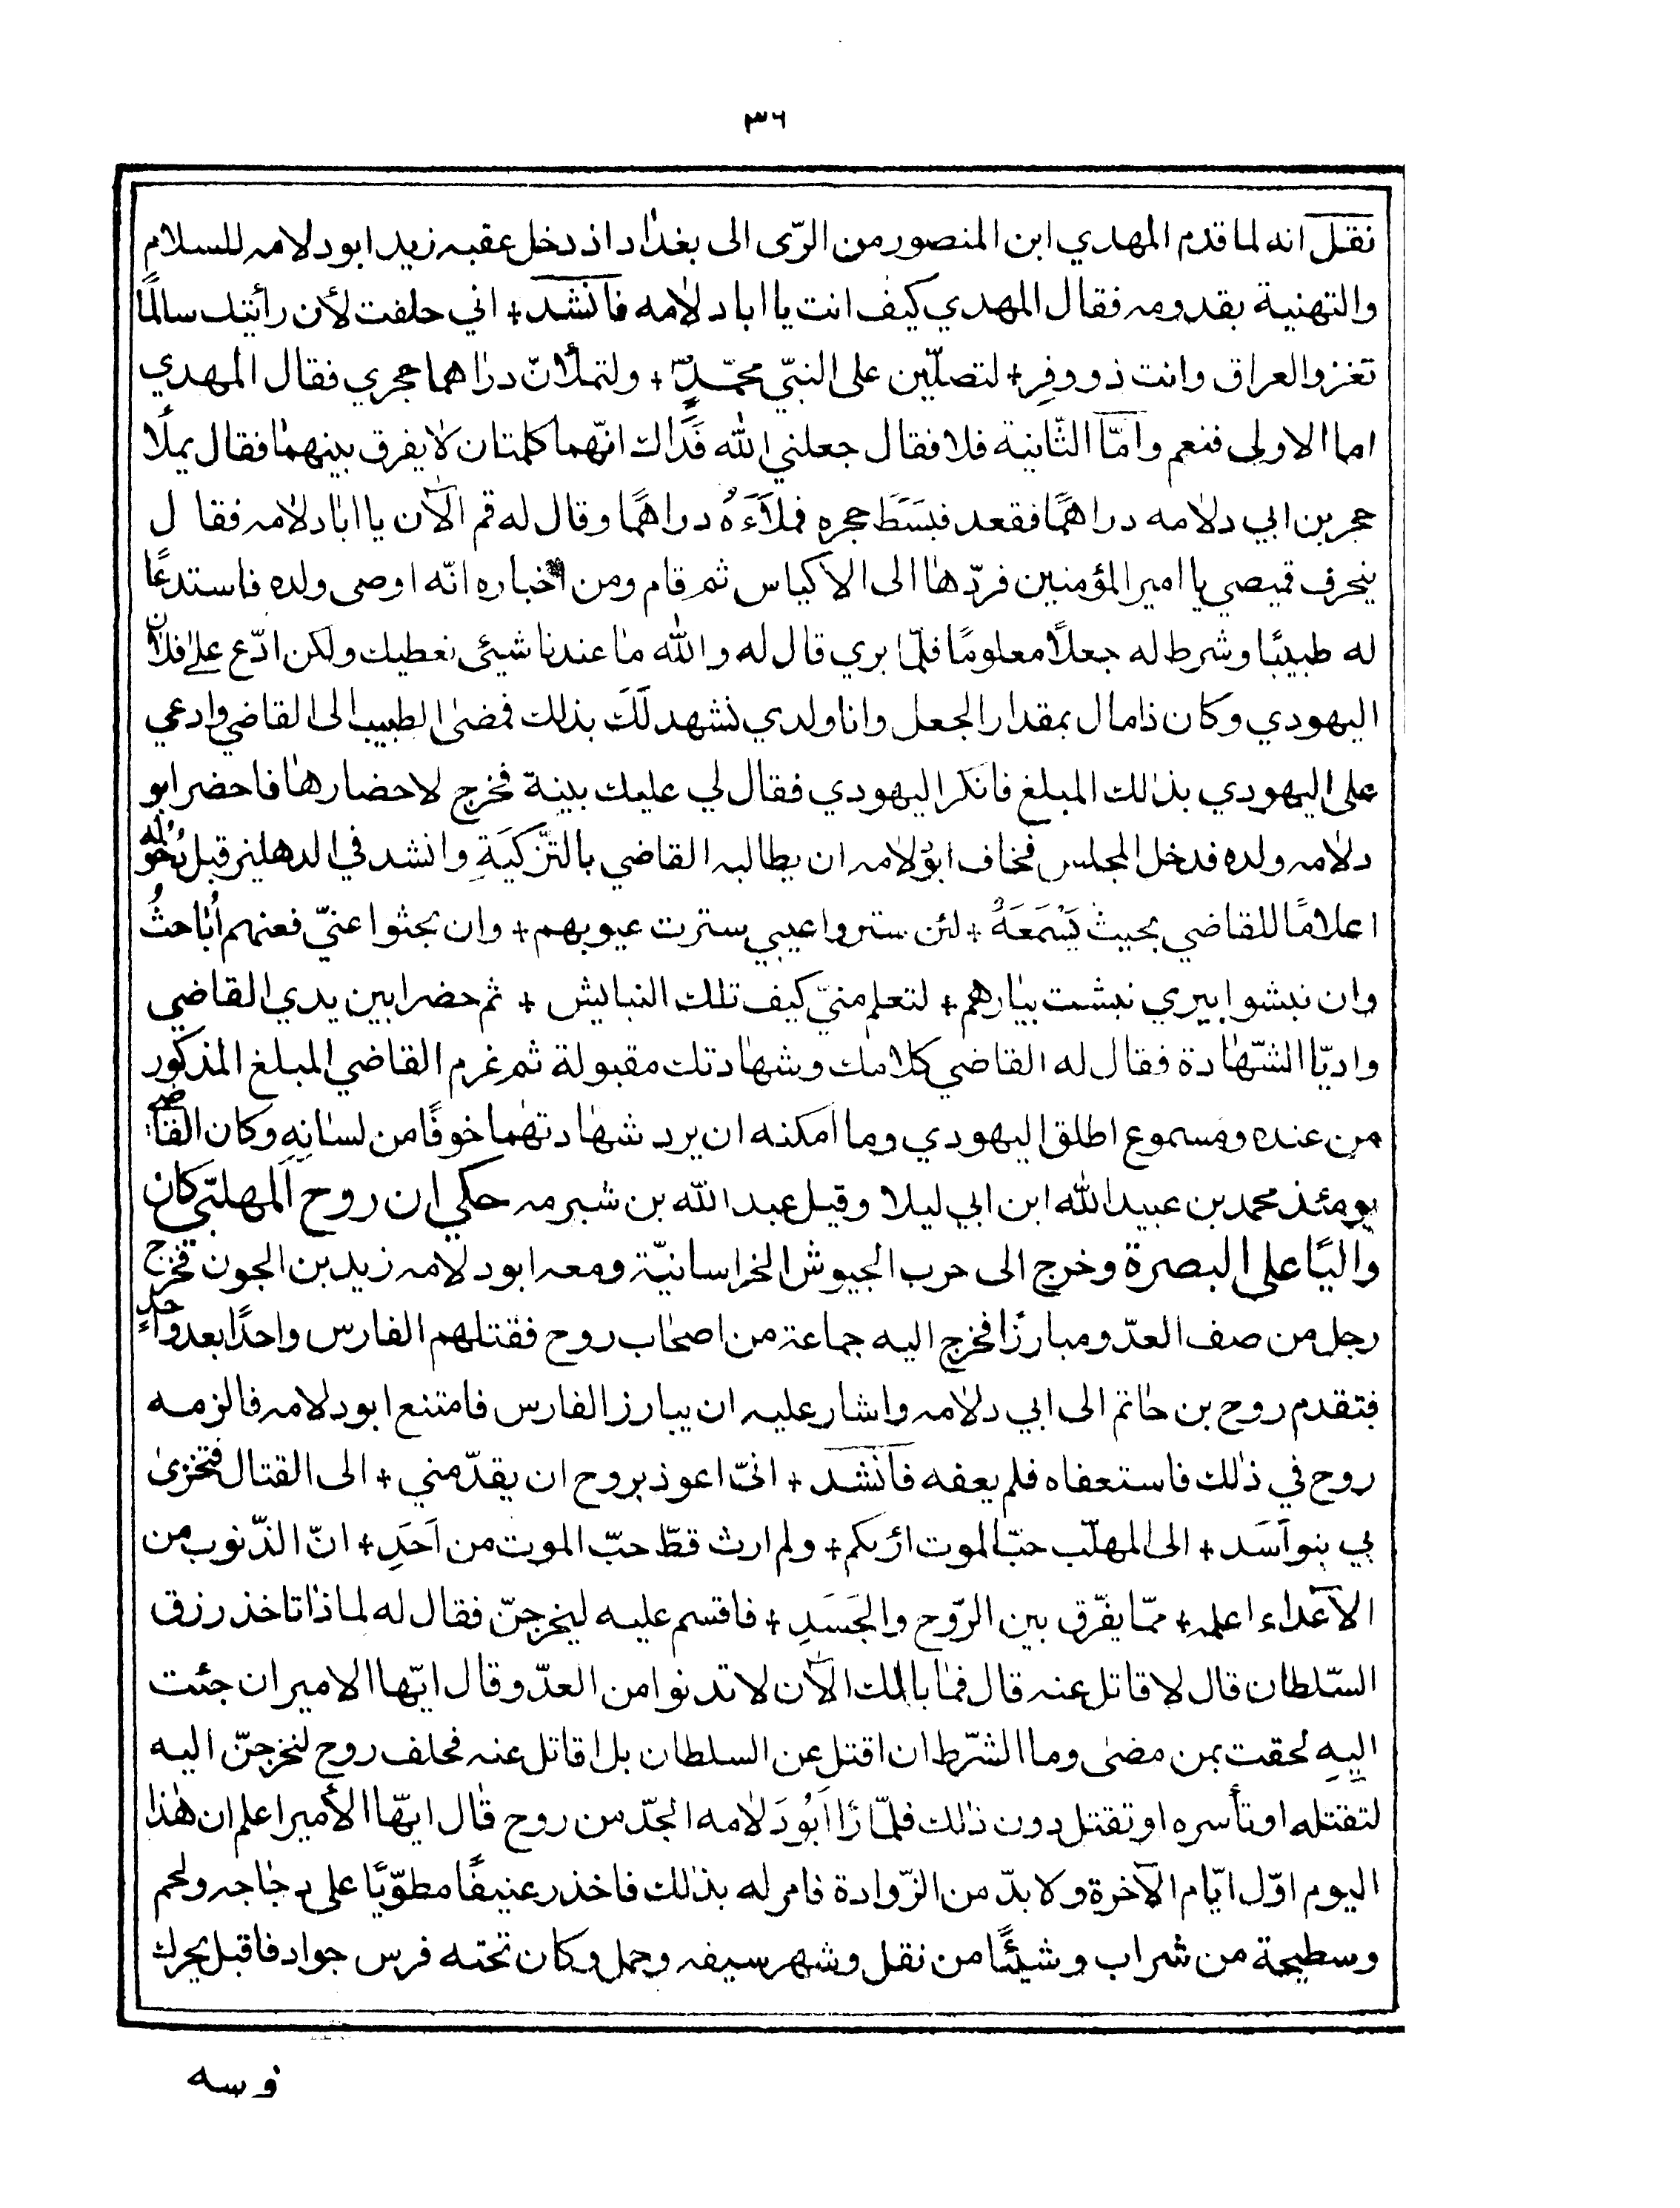 ٣٦
نقل انه لما قدم المهدي ابن المنصور من الرّى الى بغداد اذ دخل عقبه زيد ابو دلامه للسلام
والتهنية بقدومه فقال المهدي كيف انت يا ابا دلامه فانشد + اني حلفت لأن رأتيك سالمًا
تغزو العراق وانت ذو وفرٍ + لتصلّين على النبّي محمّدٍ + ولتملأنّ دراهما حجري فقال المهدي
اما الاولى فنعم وامّا الثّانية فلا فقال جعلني الله فَداك انّهما كلمتان لا يفرق بينهما فقال يملأ
حجر بن ابي دلامه دراهمًا فقعد فبَسَطَ حجره فملأَءَهُ دراهمًا وقال له قم الآن يا ابا دلامه فقال
ينحرف قميصي يا امير المؤمنين فردّها الى الاكياس ثم قام ومن اخباره انّه اوصى ولده فاستدعا
له طبيبًا وشرط له جعلًا معلومًا فلمّا بري قال له والله ما عندنا شيئى نعطيك ولكن ادّع على فلان
اليهودي وكان ذا مال بمقدار الجعل وانا ولدي نشهد لَكَ بذلك فمضى الطبيب الى القاضي وادعي
على اليهودي بذلك المبلغ فانكر اليهودي فقال لي عليك بينة فخرج لاحضارها فاحضر ابو
دلامه ولده فدخل المجلس فخاف ابو لامه ان يطالبه القاضي بالتّزكيَةِ وانشد في الدهليز قبل دُخُولُه
اعلامًا للقاضي بحيث يَسْمَعَهُ + لئن ستروا عيبي سترت عيوبهم + وان بحثوا عنيّ فعنهم أُباحثُ
وان نبشوا بيري نبشت بيارهم + لتعلم منيّ كيف تلك النبايش + ثم حضرا بين يدي القاضي
واديّا الشّهادة فقال له القاضي كلامك وشهادتك مقبولة ثم غرم القاضي المبلغ المذكور
من عنده ومسموع اطلق اليهودي وما امكنه ان يرد شهادتهما خوفًا من لسانِهِ وكان القاضي
يومئذ محمد بن عبيد الله ابن ابي ليلا وقيل عبد الله بن شبرمه حكي ان روح المهلبّي كان
واليًا على البصرة وخرج الى حرب الجيوش الخراسانيّة ومعه ابو دلامه زيد بن الجون فخرج
رجل من صف العدّو مبارزًا فخرج اليه جماعة من اصحاب روح فقتلهم الفارس واحدًا بعد واحدٍ
فتقدم روح بن حاتم الى ابي دلامه واشار عليه ان يبارز الفارس فامتنع ابو دلامه فالزمه
روح في ذلك فاستعفاه فلم يعفه فانشد + انىّ اعوذ بروح ان يقدّمني + الى القتال فتخزىٰ
بي بنو اَسَد + الى المهلّب حبّ الموت ارُبكم + ولم ارث قطّ حبّ الموت من اَحَدِ + انّ الذّنوب من
الاَعداء اعلمه + ممّا يفّرق بين الرّوح والجَسَدِ + فاقسم عليه ليخرجنّ فقال له لماذا تاخذ رزق
السّلطان قال لا قاتل عنه قال فما بالك الآن لا تدنوا من العدّو قال ايّها الامير ان جئت
اليهِ لحقت بمن مضى وما الشّرط ان اقتل عن السلطان بل اقاتل عنه فحلف روح لنخرجنّ اليه
لتقتله او تأسره او تقتل دون ذلك فلمّا رَاَ اَبُو دَلامه الجدّ من روح قال ايهّا الأمير اعلم ان هذا
اليوم اوّل ايّام الآخرة ولا بدّ من الزّوادة فامر له بذلك فاخذ رغيفًا مطوّيًا على دجاجه ولحم
وسطيحة من شراب وشيئًا من نقل وشهر سيفه وحمل وكان تحته فرس جواد فاقبل يحرك
فرسه